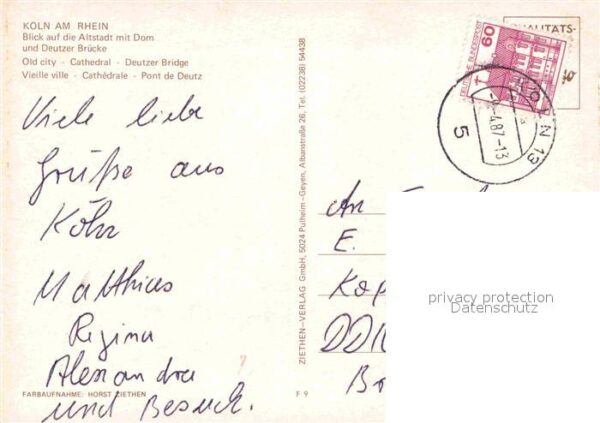 KÖLN AM RHEIN
Blick auf die Altstadt mit Dom
und Deutzer Brücke
Old city - Cathedral - Deutzer Bridge
Vieille ville - Cathédrale - Pont de Deutz
Viele liebe
Grüße aus
Köln
Matthias
Regina
Alexandra
und Besuch.
FARBAUFNAHME: HORST ZIETHEN
F 9
ZIETHEN-VERLAG GmbH, 5024 Pulheim-Geyen, Albanstraße 26, Tel. (02238) 54438
60
DEUTSCHE BUNDESPOST
QUALITÄTS-
4.87-13
N 13
5
An
E.
Kop
DDR
privacy protection
Datenschutz